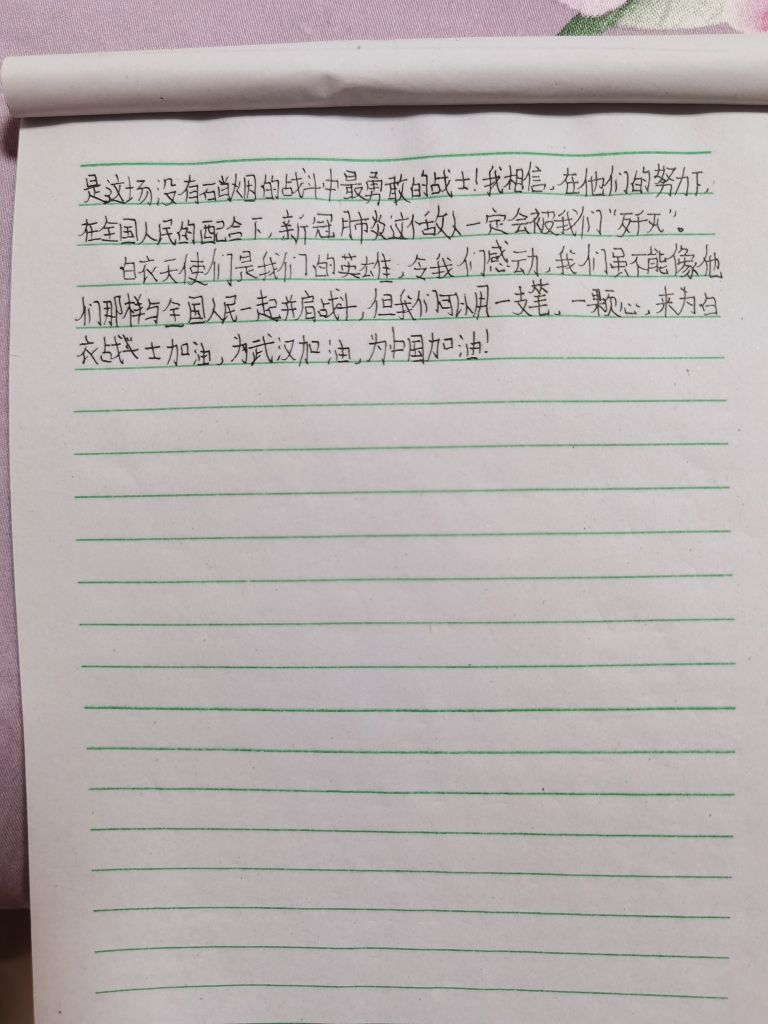 是这场没有硝烟的战斗中最勇敢的战士！我相信，在他们的努力下，
在全国人民的配合下，新冠肺炎这个敌人一定会被我们“歼灭”。
白衣天使们是我们的英雄，令我们感动，我们虽不能像他
们那样与全国人民一起并肩战斗，但我们可以用一支笔，一颗心，来为白
衣战士加油，为武汉加油，为中国加油！